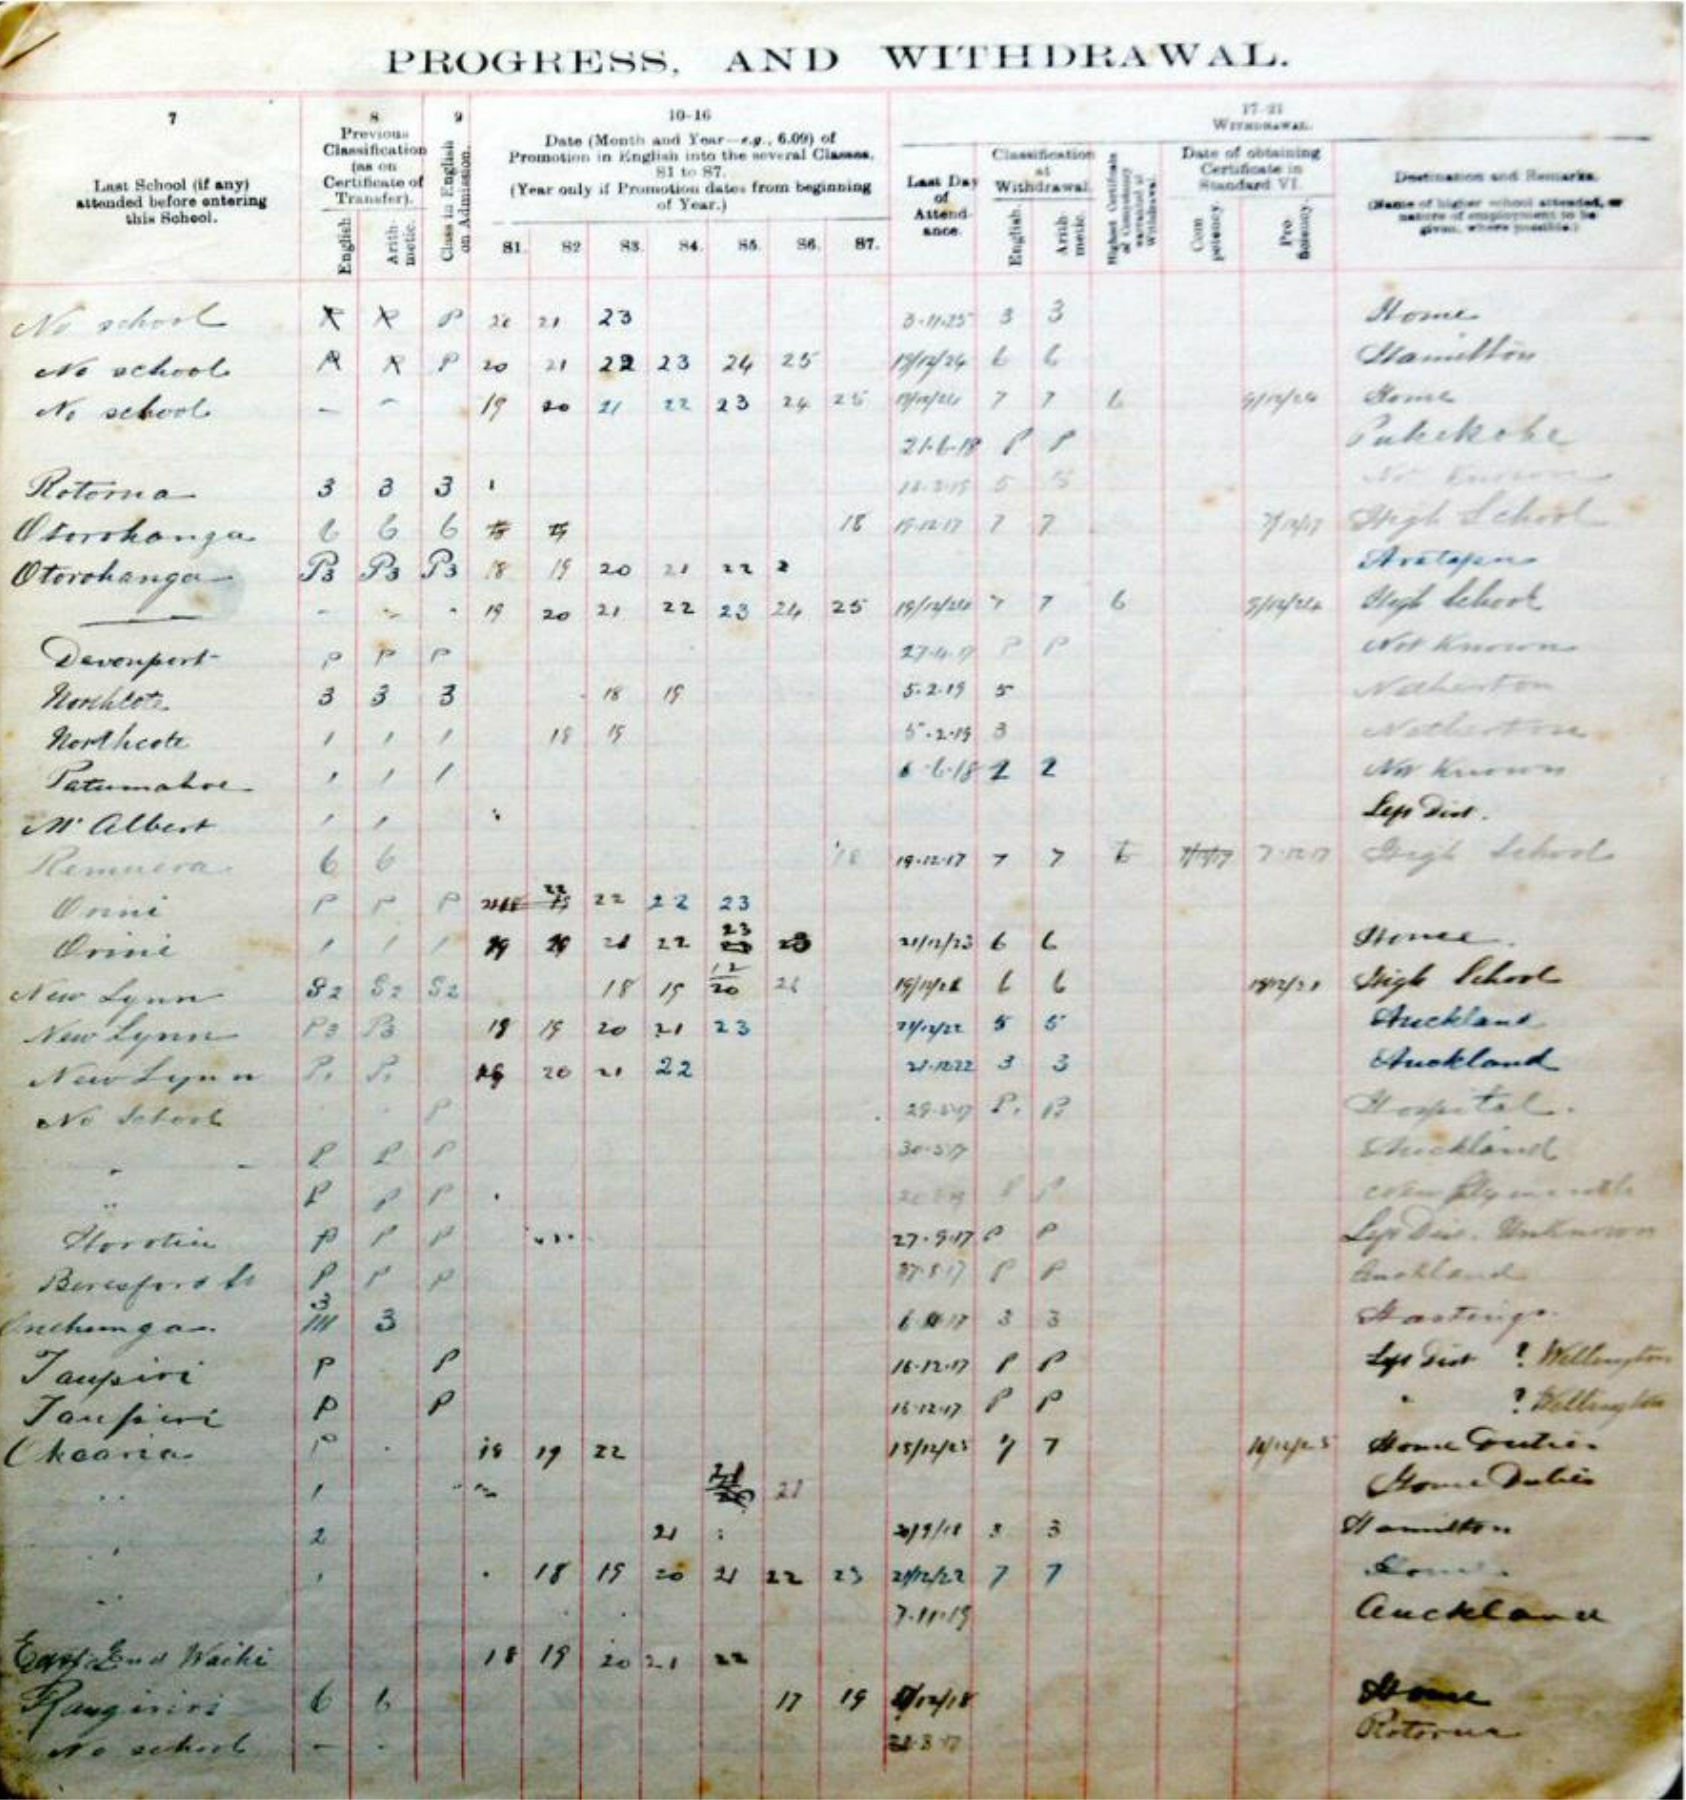 PROGRESS, AND WITHDRAWAL.
7 8 9 10-16 17-21
Last School (if any) attended before entering this School.
Previous Classification (as on Certificate of Transfer).
English. Arith-metic.
Class in English on Admission.
Date (Month and Year—e.g., 6.09) of Promotion in English into the several Classes, S1 to S7. (Year only if Promotion dates from beginning of Year.)
S1. S2 S3. S4. S5. S6. S7.
WITHDRAWAL.
Last Day of Attend-ance.
Classification at Withdrawal.
English. Arith-metic.
Highest Certificate of Competency
Withdrawal.
Date of obtaining Certificate in Standard VI.
Com-petency. Pro-ficiency.
Destination and Remarks.
(Name of higher school attended, or nature of employment to be given, where possible.)
No school P 21 23 3 3 Home
No school P 20 21 22 23 24 25 6 6 Hamilton
No school - - 19 20 21 22 23 24 25 7 7 6 Home
21.6.18 P P Pukekohe
Rotorua 3 3 3 5 5 Not Known
Otorohanga 6 6 6 18 19.12.17 7 7 High School
Otorohanga P3 P3 P3 18 19 20 21 22 2
- - - 19 20 21 22 23 24 25 19/12/24 7 7 6 High School
Devonport P P P P P Not Known
Northcote 3 3 3 18 19 5.2.19 5 Netherton
Northcote 1 1 1 18 19 5.2.19 3 Netherton
Patumahoe 1 1 1 6.6.18 2 2 Not Known
Mt Albert 1 1 Left Dist.
Remuera 6 6 18 19.12.17 7 7 6 7.12.17 High School
Orini P P P 22 22 22 23
Orini 1 1 1 19 21 22 23 21/12/23 6 6 Home.
New Lynn S2 S2 S2 18 19 12/20 21 6 6 High School
New Lynn P3 P3 18 19 20 21 23 21/12/22 5 5 Auckland
New Lynn P1 P1 19 20 21 22 21.12.22 3 3 Auckland
No School P P. P. Hospital.
" - P P P 30.5.17 Auckland
" P P P P P New Plymouth
Horotiu P P P 27.9.17 P P Left Dis. Unknown
Beresford St P P P P P Auckland
Onehunga 3 3 3 3 Hastings
Taupiri P P 16.12.17 P P Left Dist ? Wellington
Taupiri P P 16.12.17 P P " ? Wellington
Ohaaria P 18 19 22 7 7 Home Duties
" 1 21 Home Duties
" 2 21 3 3 Hamilton
" 1 18 19 20 21 22 23 21/12/22 7 7 Home
" 7.11.19 Auckland
East End Waihi 18 19 20 21 22
Rangiriri 6 6 17 19 Home
No school - - Rotorua